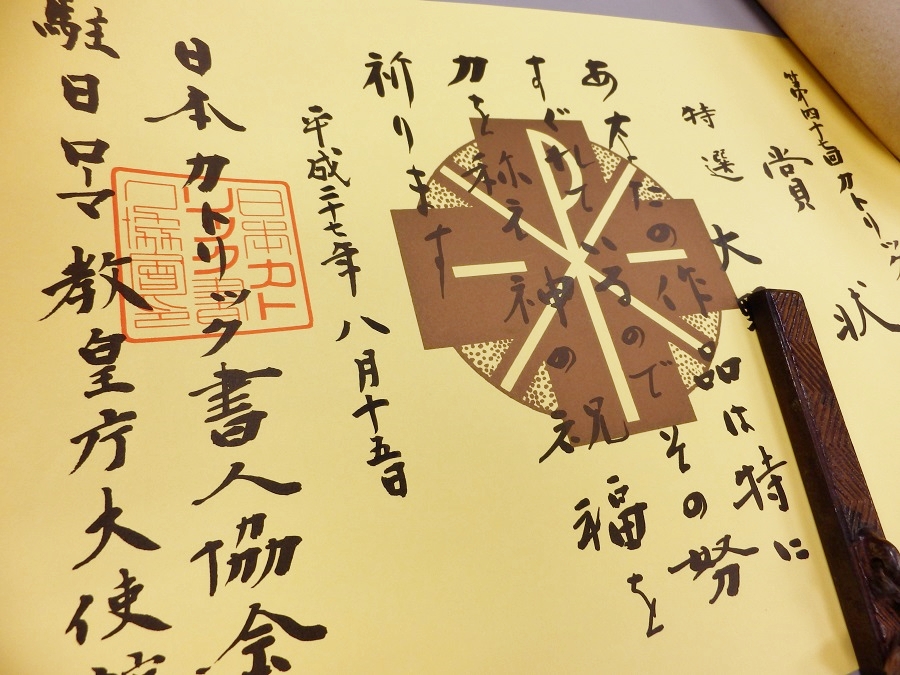 第四十七回カトリック
賞状
特選 大
あなたの作品は特に
すぐれているのでその努
力を称え神の祝福を
祈ります
平成二十七年八月十五日
日本カトリック書人協会
駐日ローマ教皇庁大使館